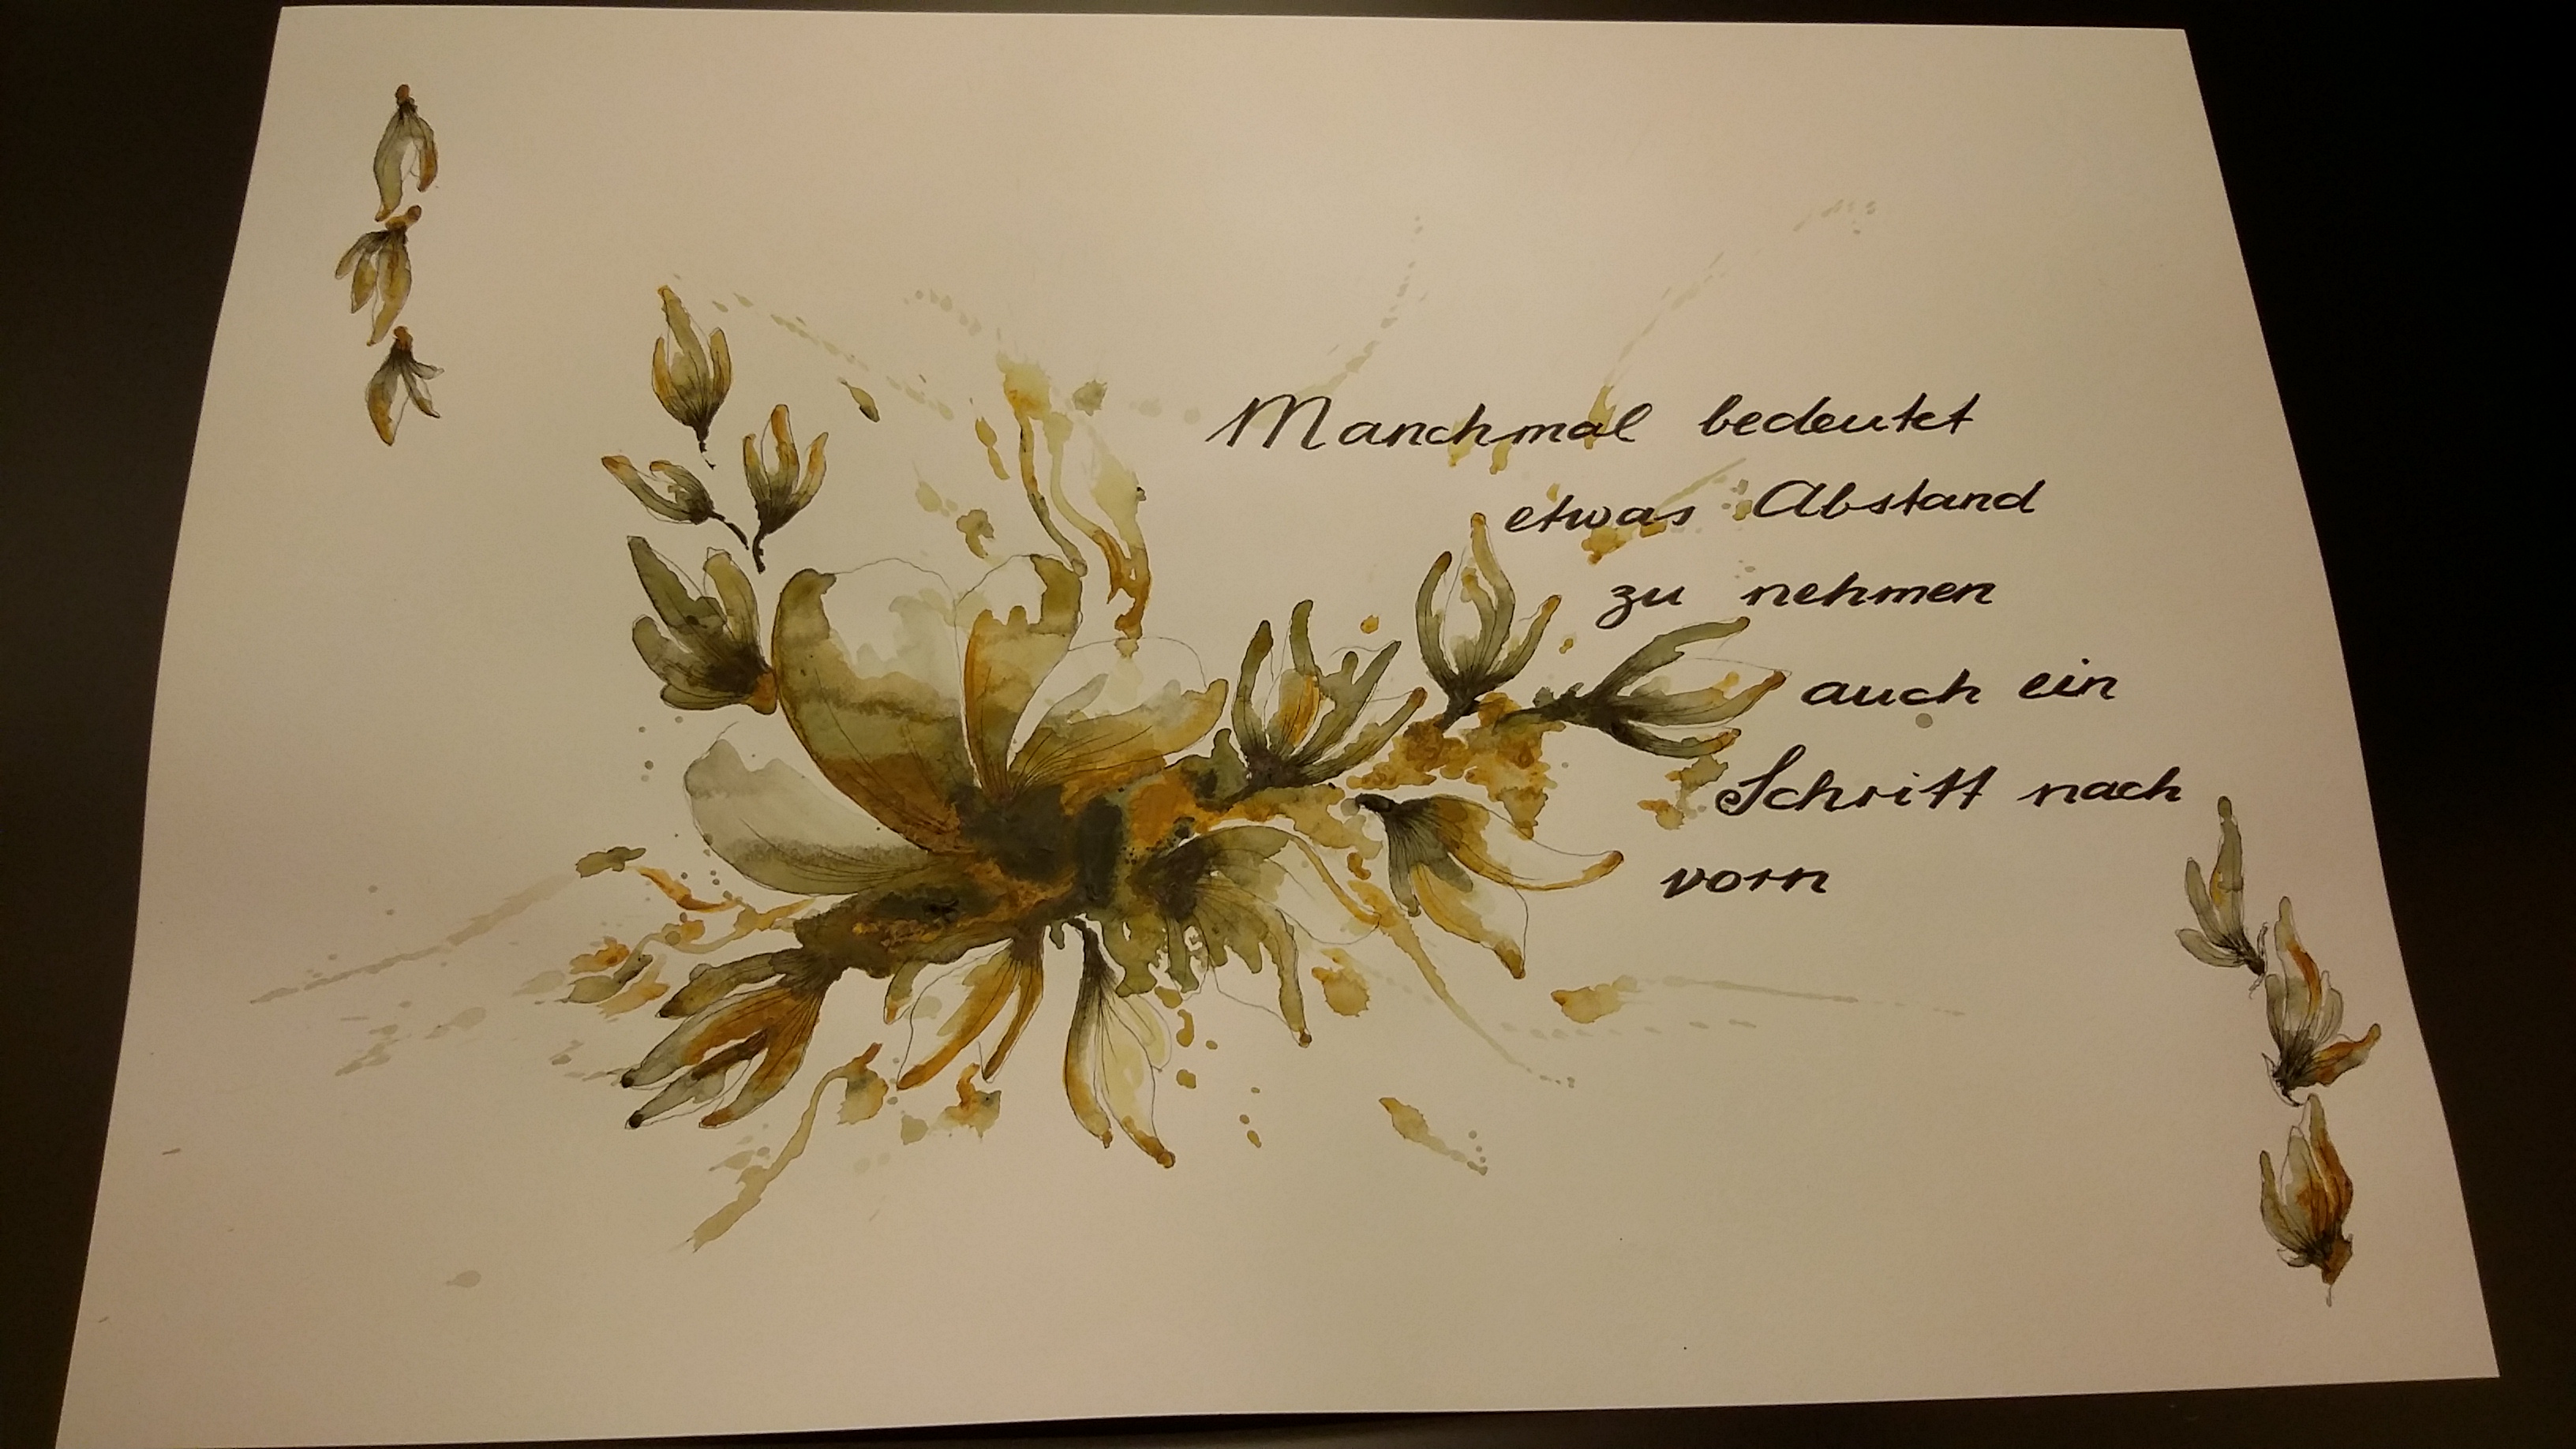 Manchmal bedeutet
etwas Abstand
zu nehmen
auch ein
Schritt nach
vorn